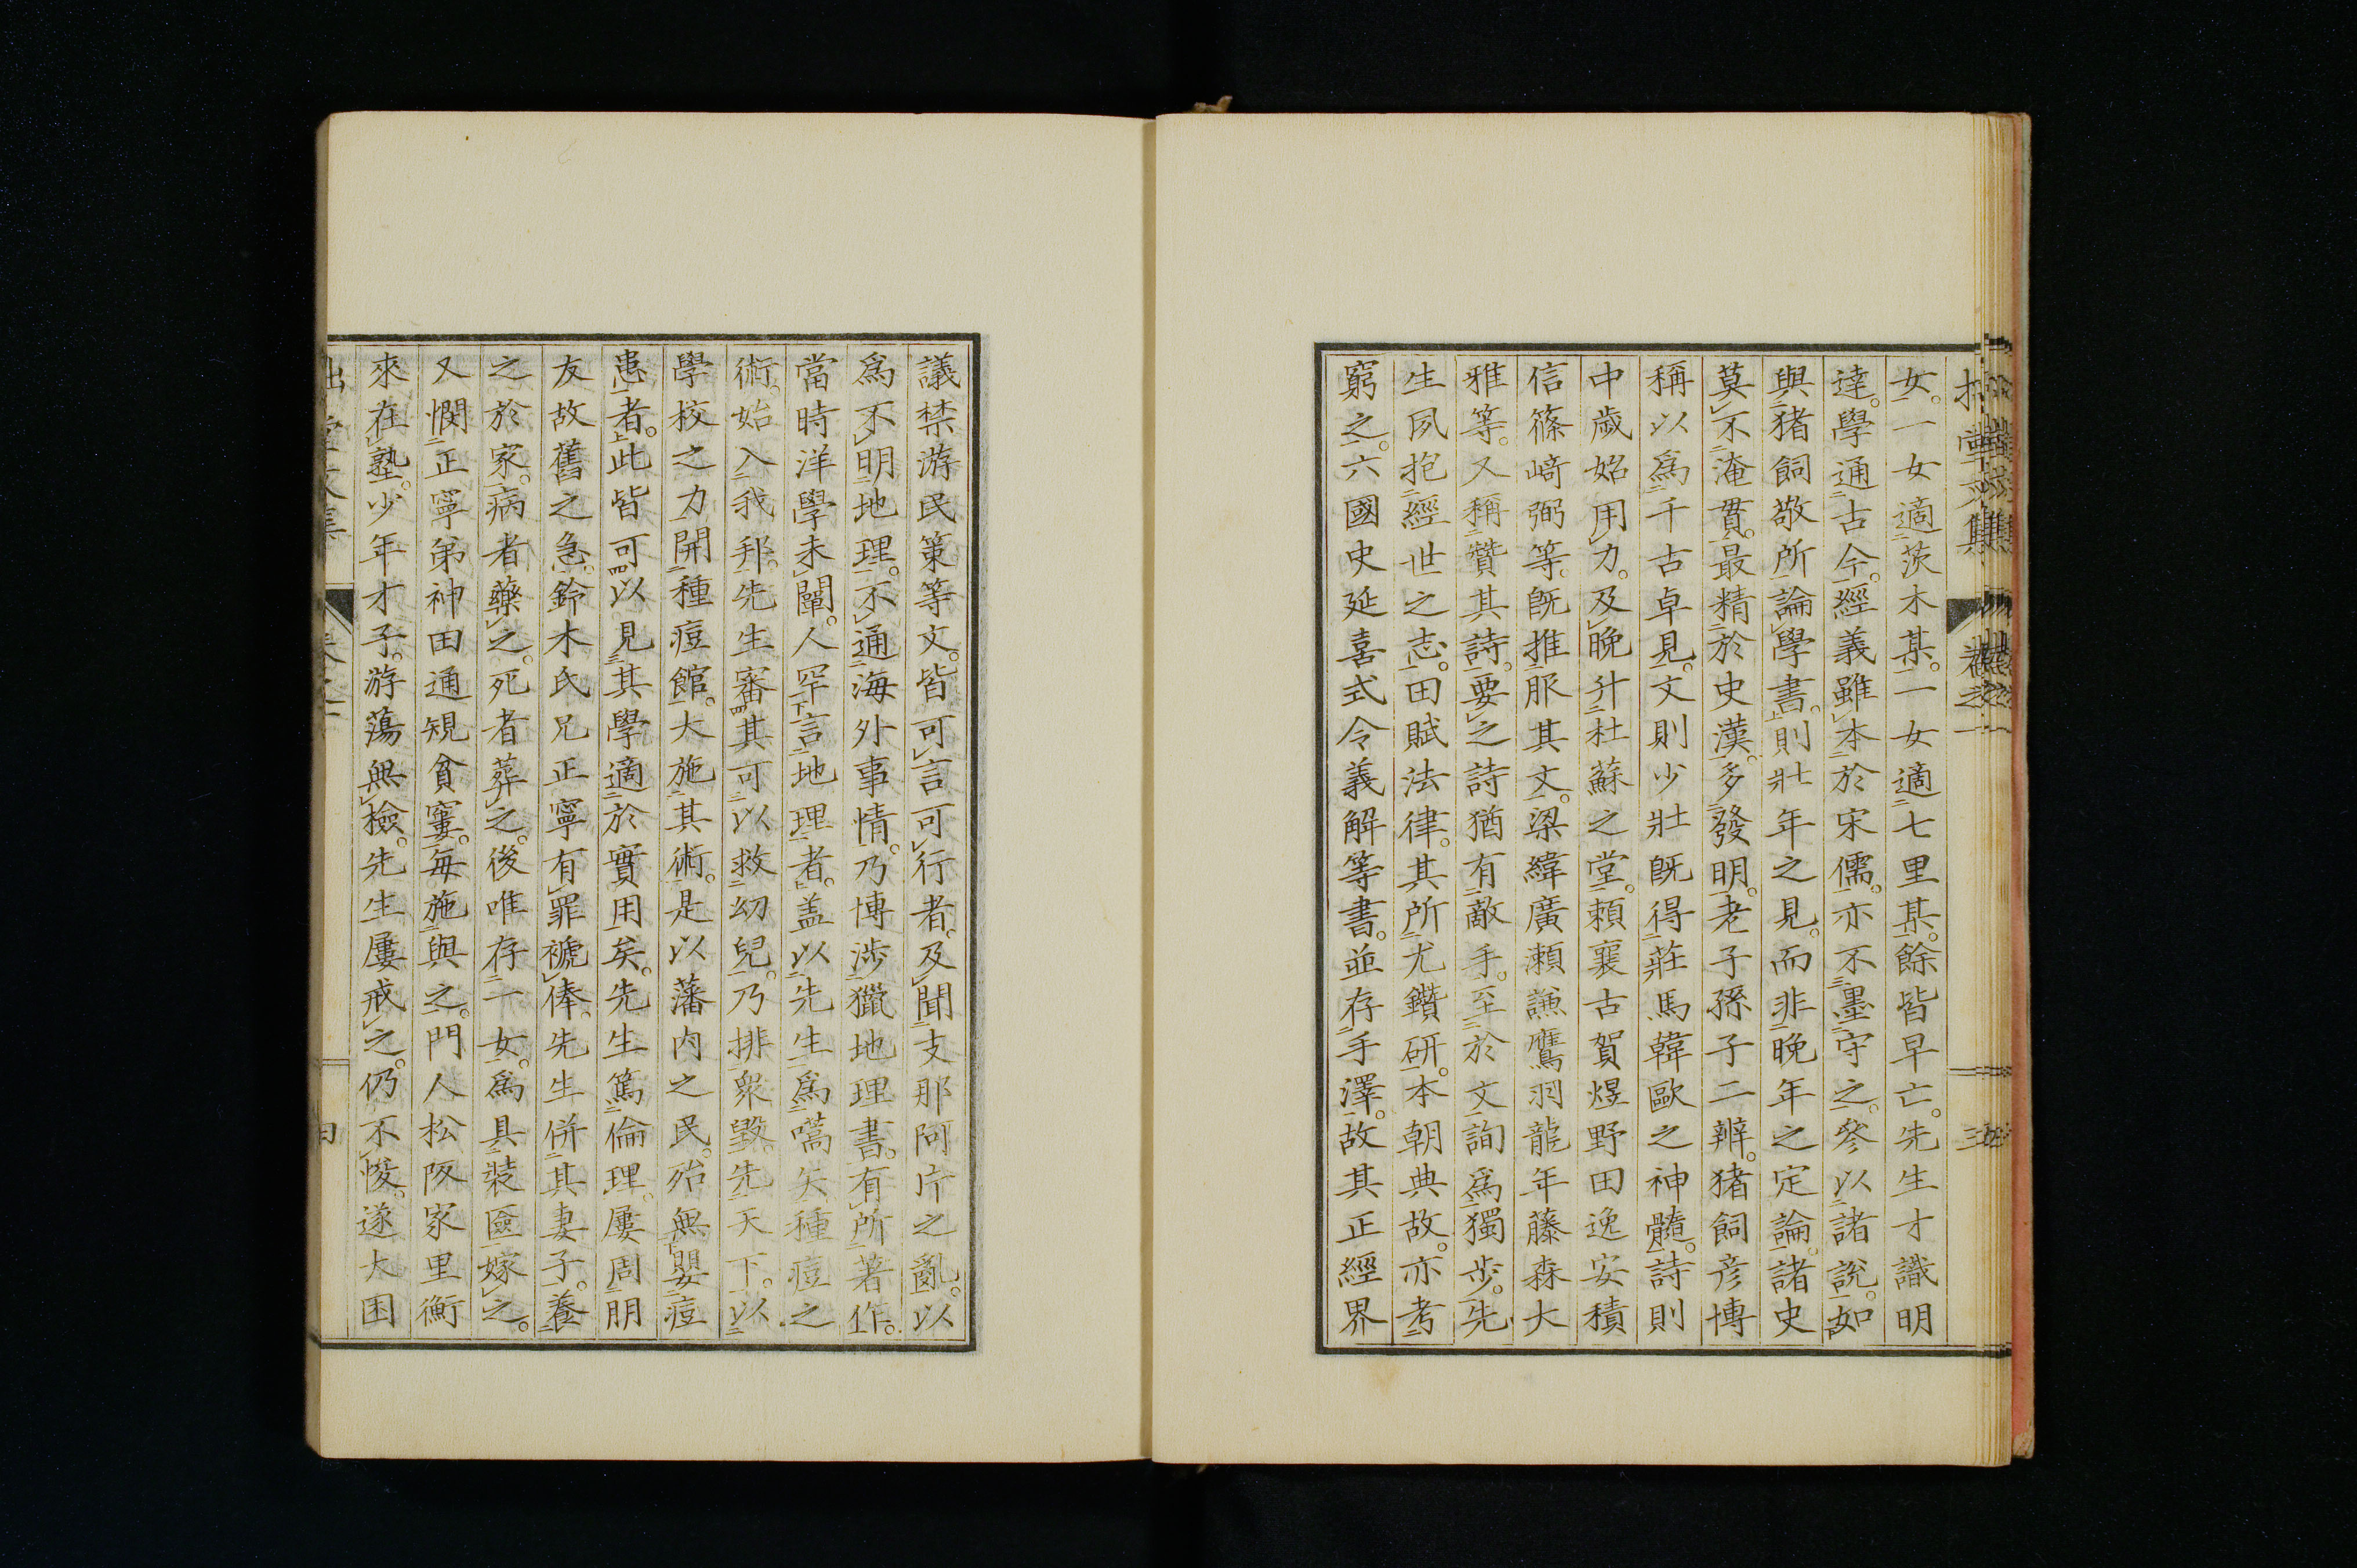 女。一女適茨木某。一女適七里某。餘皆早亡。先生才識明
達。學通古今。經義雖本於宋儒。亦不墨守之。參以諸說。如
與猪飼敬所論學書。則壯年之見。而非晚年之定論。諸史
莫不淹貫。最精於史漢。多發明。老子孫子二辨。猪飼彦博
稱以爲千古卓見。文則少壯既得莊馬韓歐之神髓。詩則
中歲始用力。及晚升杜蘇之堂。賴襄古賀煜野田逸安積
信篠﨑弼等。既推服其文。梁緯廣瀬謙鷹羽龍年藤森大
雅等。又稱贊其詩。要之詩猶有敵手。至於文詢爲獨步。先
生夙抱經世之志。田賦法律。其所尤鑽研。本朝典故。亦考
窮之。六國史延喜式令義解等書。並存手澤。故其正經界
議禁游民策等文。皆可言可行者。及聞支那阿片之亂。以
爲不明地理。不通海外事情。乃博涉獵地理書。有所著作。
當時洋學未闡。人罕言地理者。盖以先生爲嚆矢。種痘之
術。始入我邦。先生審其可以救幼兒。乃排衆毀。先天下。以
學校之力開種痘館。大施其術。是以藩内之民。殆無嬰痘
患者。此皆可以見其學適於實用矣。先生篤倫理。屢周朋
友故舊之急。鈴木氏兄正寧有罪褫俸。先生併其妻子。養
之於家。病者藥之。死者葬之。後唯存一女。爲具裝匳嫁之。
又憫正寧弟神田通規貧窶。每施與之。門人松阪家里衡
來在塾。少年才子。游蕩無檢。先生屢戒之。仍不悛。遂大困